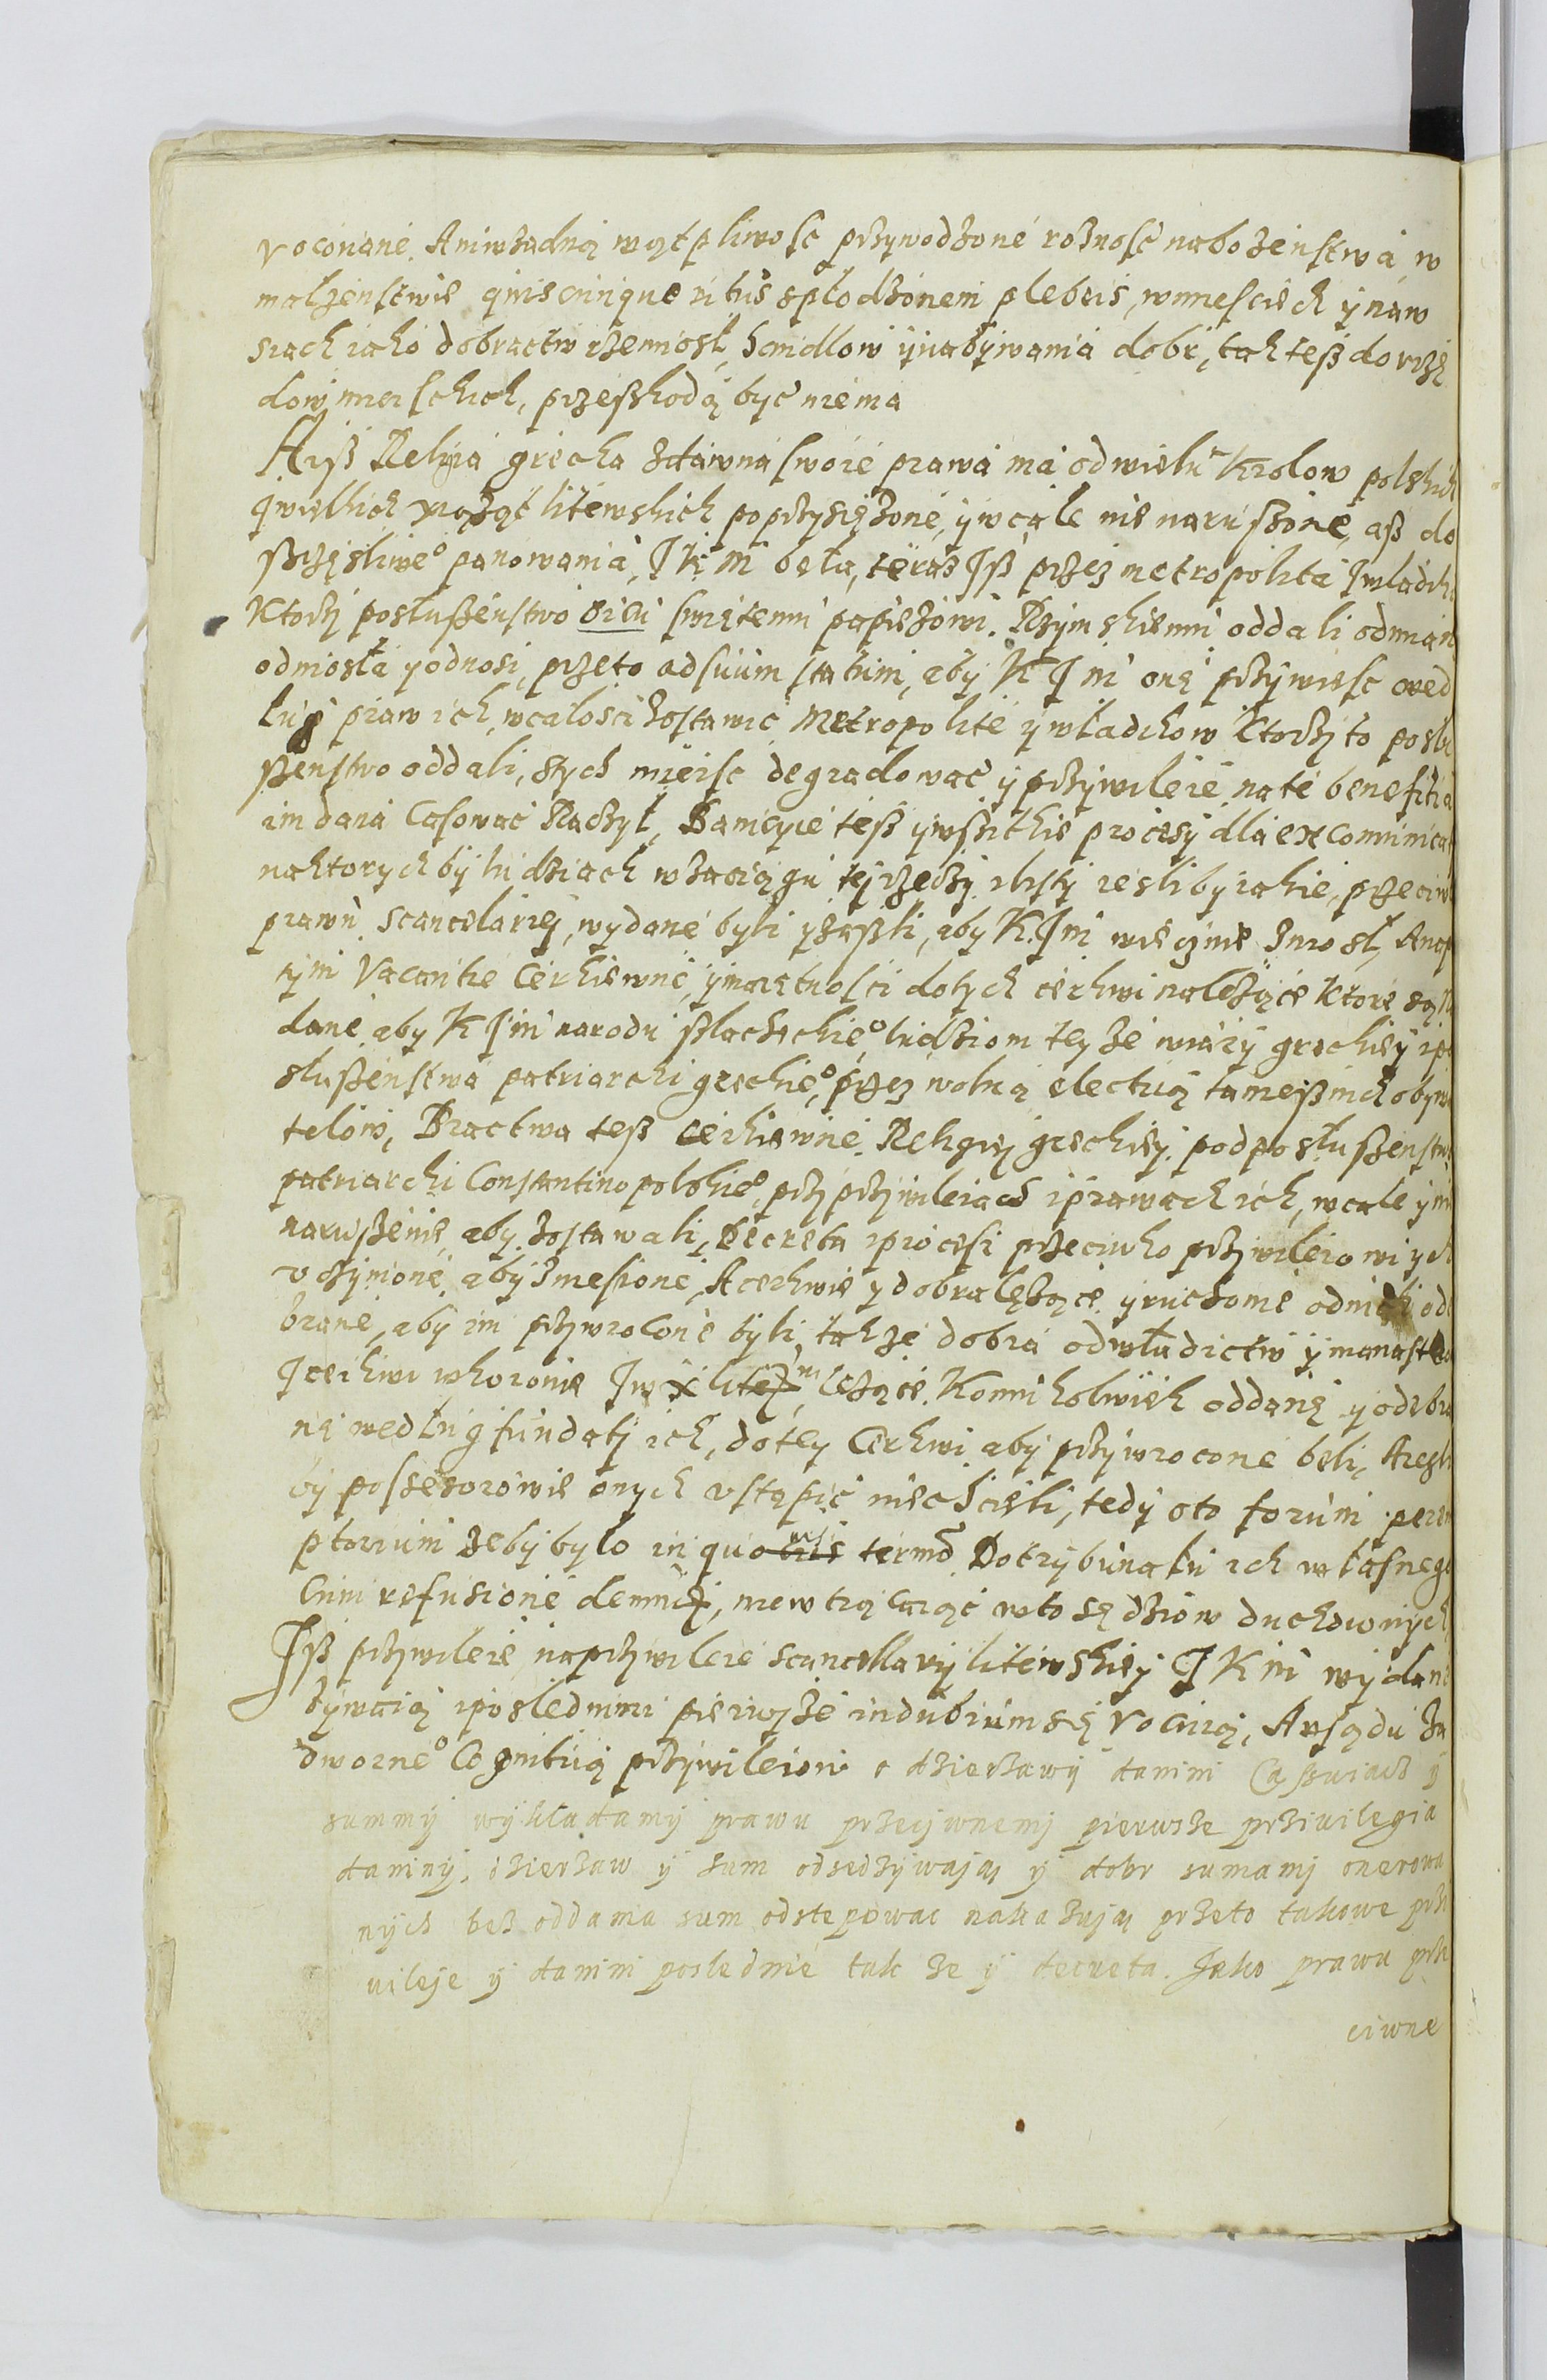 voconane. Aniwżadną wątpliwosc przywodzone rożnosć nabożenstwa, w
małżenstwie quiscunque ritus spłodzonem plebeis, wmiesciech ynaw
siach iako dobractw rzemiosł, handlow ynabywania dobr, tak też do vrzę
dow mieiskich, przeszkodą być niema
Aisz Religia grecka zdawna swoie prawa ma odwielu Krolow polskich
ywielkich xiążąt litewskich poprzysiężone, ywcale nienaruszone, asz do
szczęsliweo panowania, IKM beła, teraz Isz przez metropolita Iwladik
Ktorzy posłuszenstwo oicu swiętemu papieżowi. Rzymskiemu oddali odmian
odniosła yodnosi, przeto adsuum statum, aby KIM onę przywiesc wed
ług praw ich, wcałosci zostawić Metropolite ywładikow Ktorzy to posłu
szenstwo oddali, stych mieisc degradować y przywileie nate benefitia
im dana Casować Raczył, Banicyie też ywszitkie procesy dla excommunica
naktorychby ludziach wzaciągu tej rzeczy ilisty iesliby iakie, przeciw
prawu scancelariej, wydane byli yzaszli, aby K.IM wiecznie zniosł, Anap
tym Vacantie Cerkiewne, ymaiętnosci dotych cerkwi należące Ktore są
dane aby KIM narodu szlacheckieo ludziom teyże wiary greckiey ipo
słuszenstwa patriarchi greckieo, przez wolną electią tameisznich obywa
telow, Bractwa tesz cerkiewne Religiej greckiey podposłuszenstw
patriarchi Constantinopolskieo, przy przywileiach iprawach ich, wcale yni
naruszenie, aby zostawali, Decreta iprocesi przeciwko przywileiowi ych
vczynione, aby zniesione, Acerkwie y dobra leżące yruchome odnich od
brane, aby im przywrocone byli, także dobra odwładictw ymanaste
Icerkwi wkoronie Iwx lit leżące. Komu kolwiek oddane y odebra
nę według fundaty ich, dotey Cerkwi aby przywrocone beli, Aiesli
by possesorowie onych vstąpić niechcieli, tedy oto forum perem
ptorium żeby bylo in quo termo Dotrybunału ich własnego
Cum refusione, niewtrącaiąc wto sędziow duchownych
Isz przywileie naprzywileie scancellaryi litewskiey IKM wydane
bywaią iposlednimi pierwsze indubium się vocuią, Avsądu za
dworneo Cognitią przywileiow o dzierżawy danini Caszuiach y
summy wykładamy prawu przeciwnemi pierwsze priuilegia
daniny, dzierżaw y sum odsedzywają y dobr sumami onerowa
nych bez oddania sum odstepowac nakazują przeto takowe prze
uileje y danini poslednie tak że y decreta. Jako prawu prze
ciwne